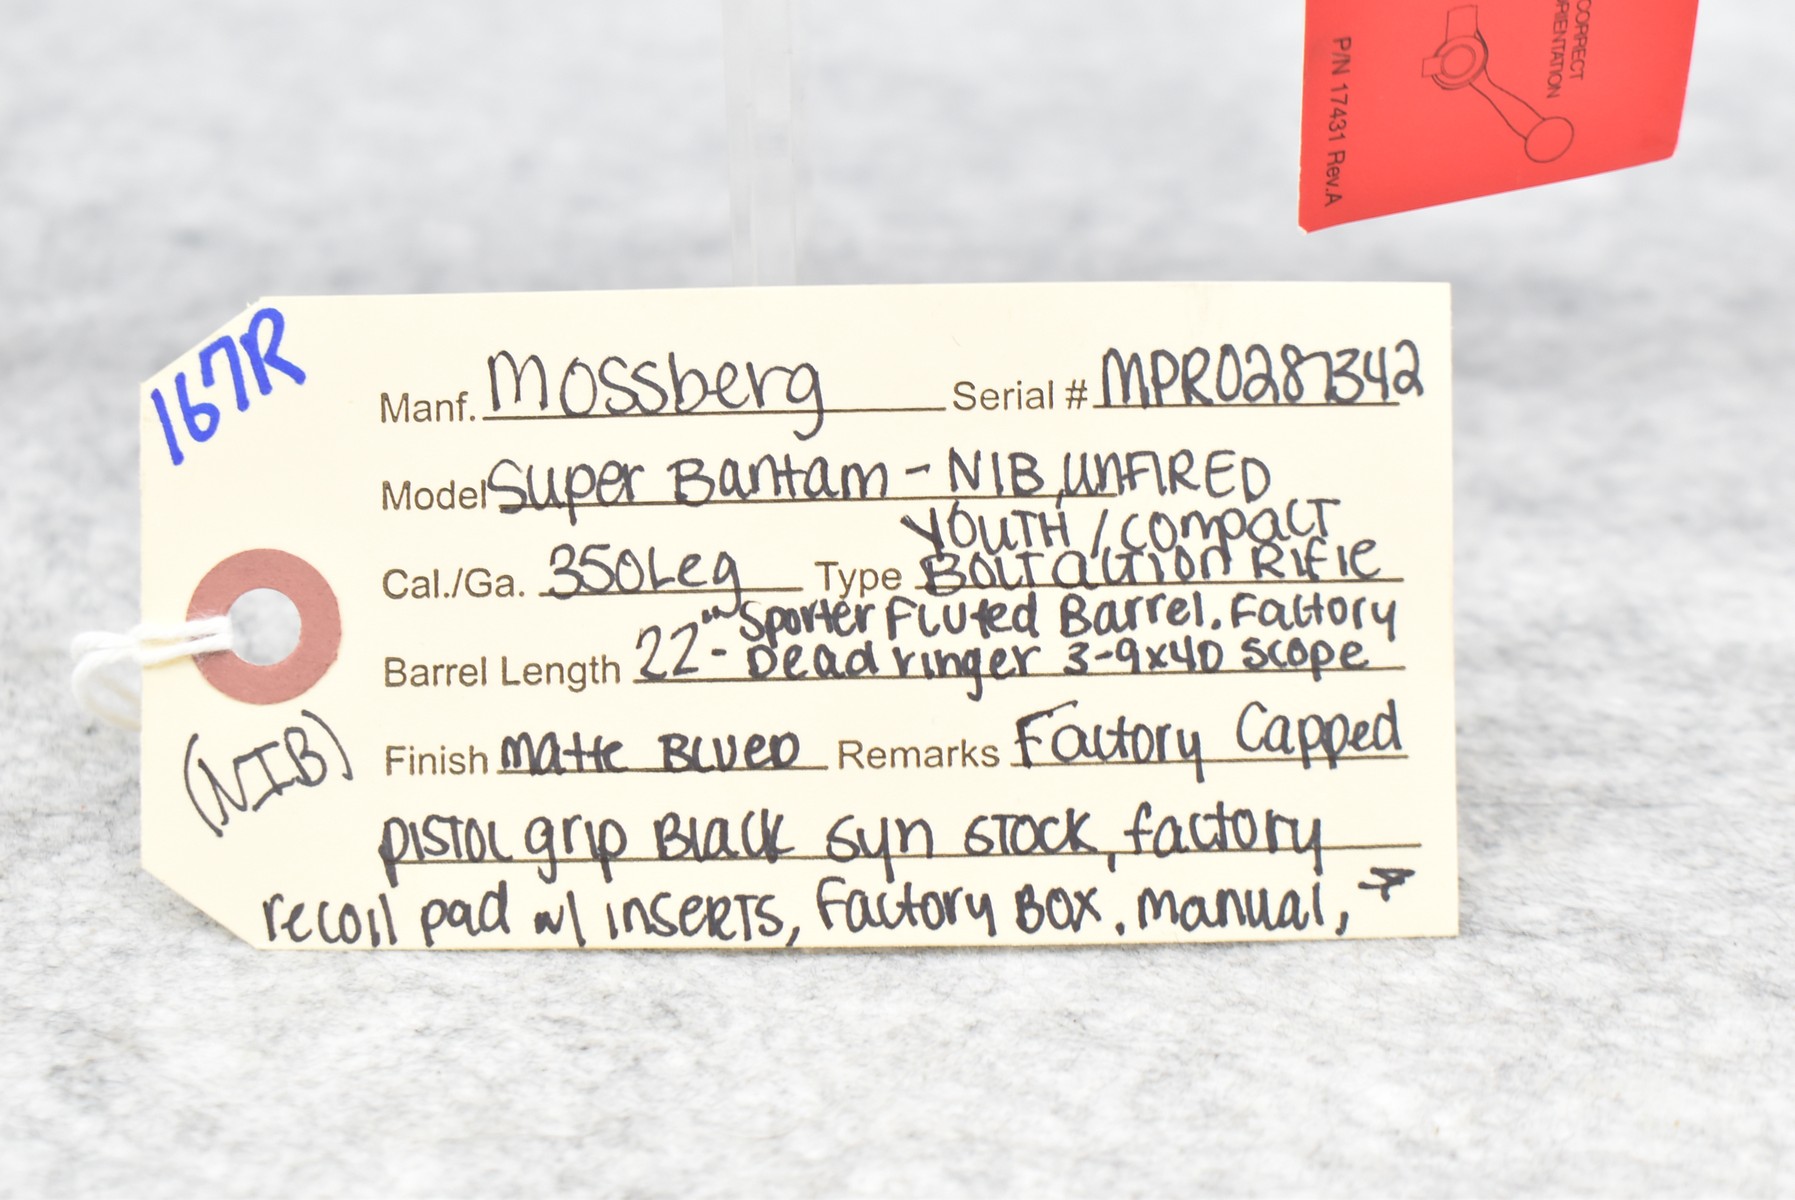 CORRECT
ORIENTATION
P/N 17431 Rev.A
167R
Manf. Mossberg Serial # MPR0287342
Model Super Bantam - NIB, UNFIRED
YOUTH / COMPACT
Cal./Ga. 350Leg Type Bolt Action Rifle
Sporter Fluted Barrel. Factory
Barrel Length 22"- Dead ringer 3-9x40 scope
(NIB)
Finish Matte Blued Remarks Factory Capped
pistol grip Black syn stock, factory
recoil pad w/ inserts, Factory Box, manual, →